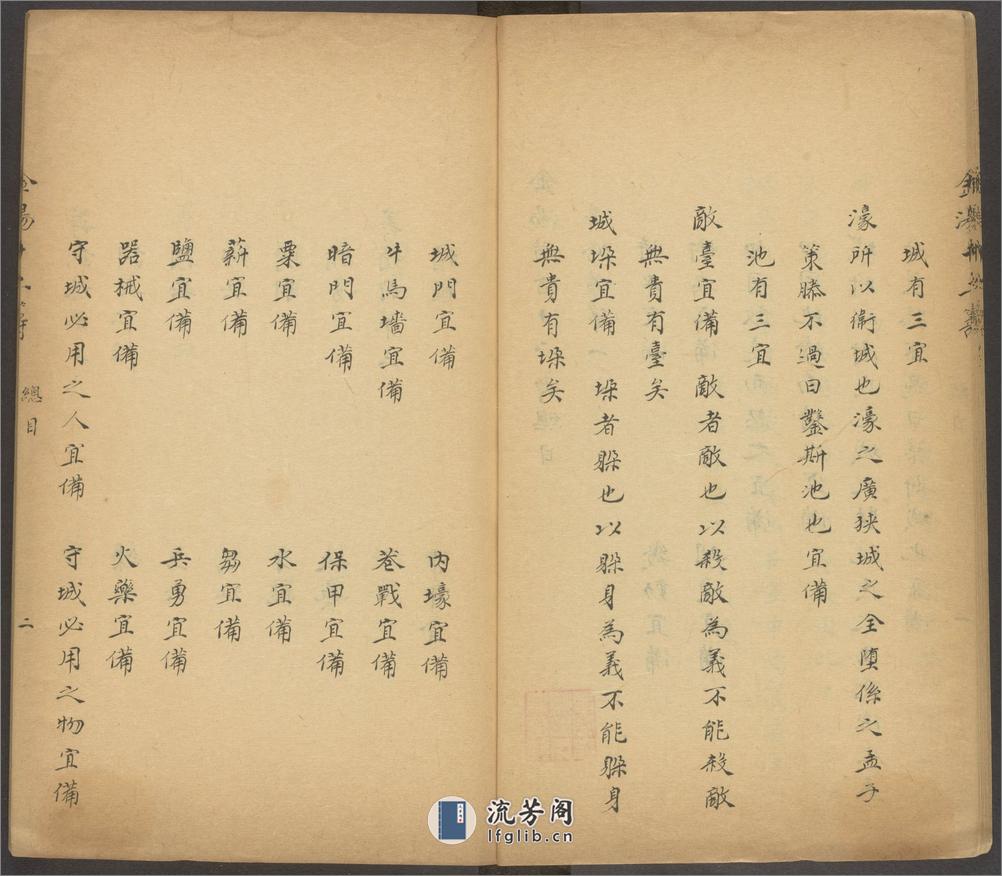 城有三宜
濠所以衛城也濠之廣狹城之全墮係之孟子
策滕不過曰鑿斯池也宜備
池有三宜
敵臺宜備 敵者敵也以殺敵為義不能殺敵
無貴有臺矣
城垛宜備 垛者躲也以躲身為義不能躲身
無貴有垛矣
城門宜備 內壕宜備
牛馬墻宜備 巷戰宜備
暗門宜備 保甲宜備
粟宜備 水宜備
薪宜備 芻宜備
鹽宜備 兵勇宜備
器械宜備 火藥宜備
守城必用之人宜備 守城必用之物宜備
總目
二
流芳阁
lfglib.cn